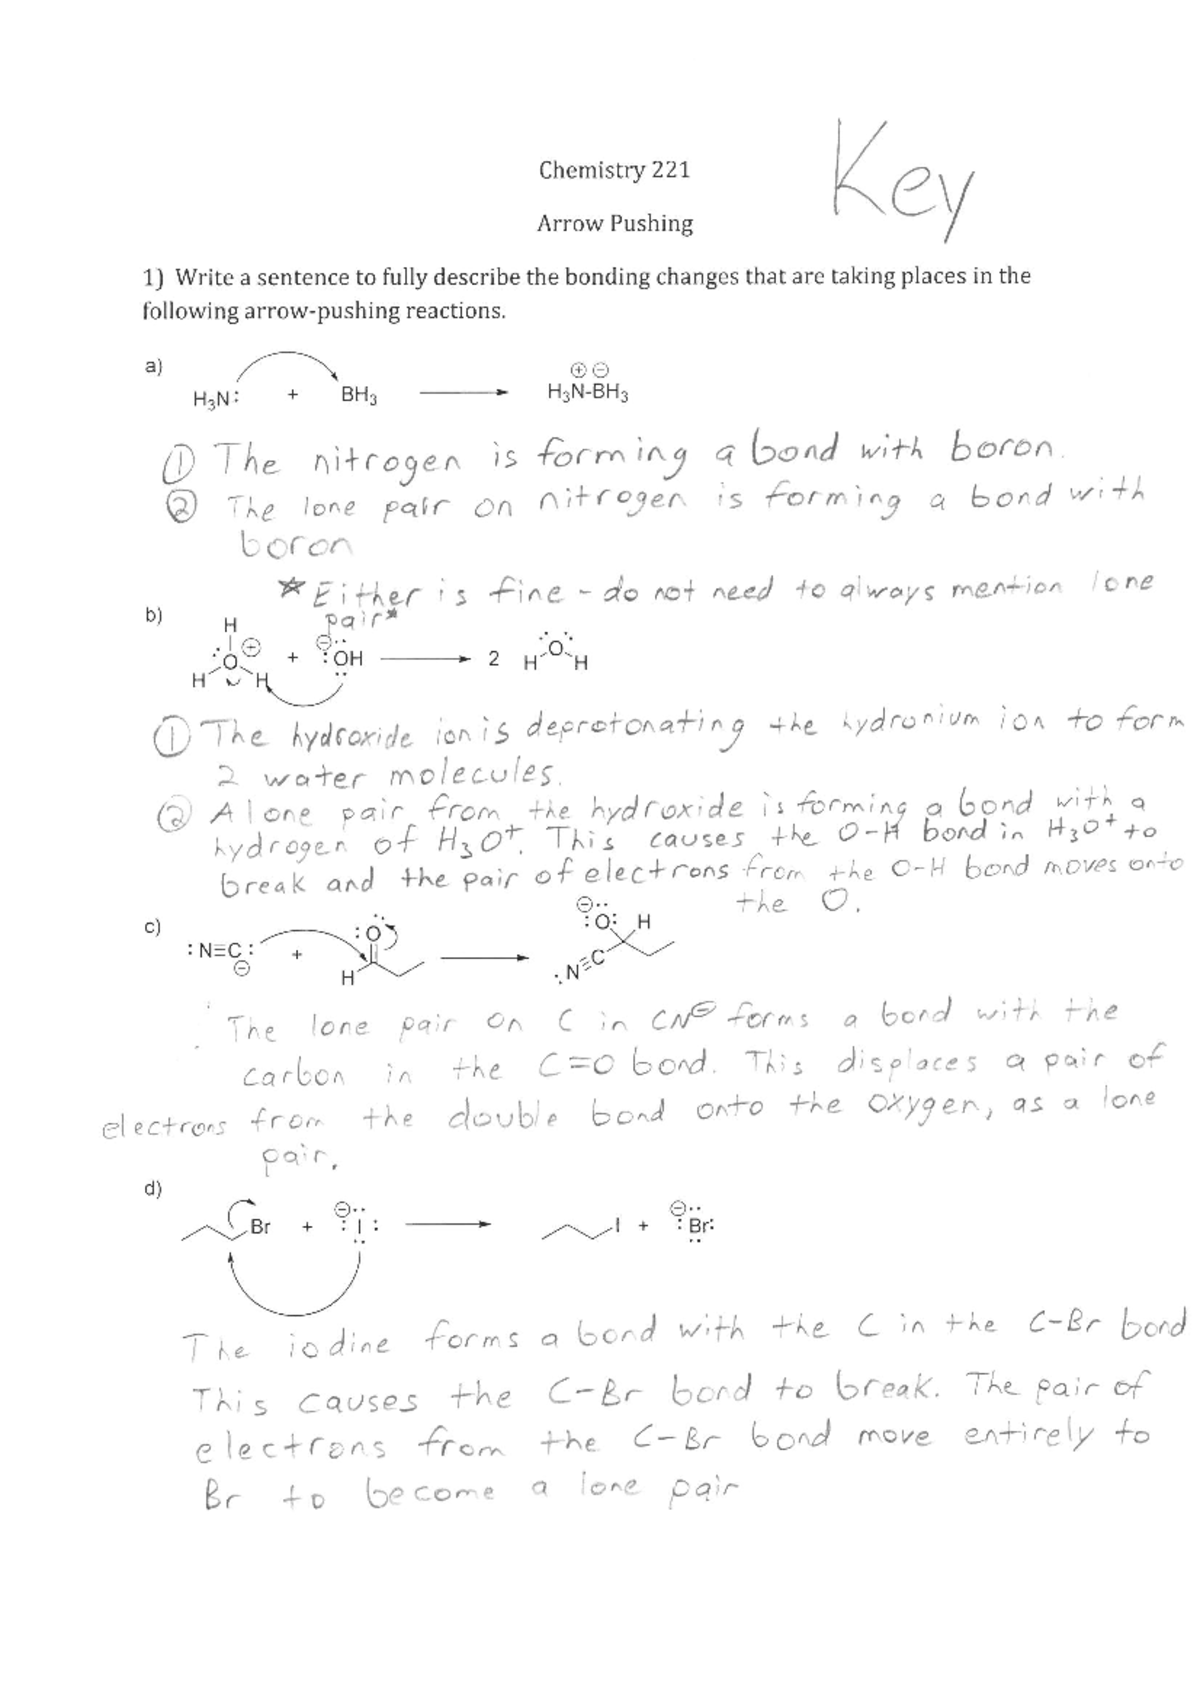 Key
Chemistry 221
Arrow Pushing
1) Write a sentence to fully describe the bonding changes that are taking places in the
following arrow-pushing reactions.
a)
H3N: + BH3 ⊕ ⊖ H3N-BH3
① The nitrogen is forming a bond with boron.
② The lone pair on nitrogen is forming a bond with
boron
*Either is fine - do not need to always mention lone
pair*
b)
H O ⊕ H H + ⊖ :OH 2 H O H
① The hydroxide ion is deprotonating the hydronium ion to form
2 water molecules.
② A lone pair from the hydroxide is forming a bond with a
hydrogen of H3O+. This causes the O-H bond in H3O+ to
break and the pair of electrons from the O-H bond moves onto
the O.
c)
:N≡C: ⊖ + :O H ⊖ :O: H :N≡C
The lone pair on C in CN⊖ forms a bond with the
carbon in the C=O bond. This displaces a pair of
electrons from the double bond onto the oxygen, as a lone
pair.
d)
Br + ⊖ :I: I + ⊖ :Br:
The iodine forms a bond with the C in the C-Br bond
This causes the C-Br bond to break. The pair of
electrons from the C-Br bond move entirely to
Br to become a lone pair